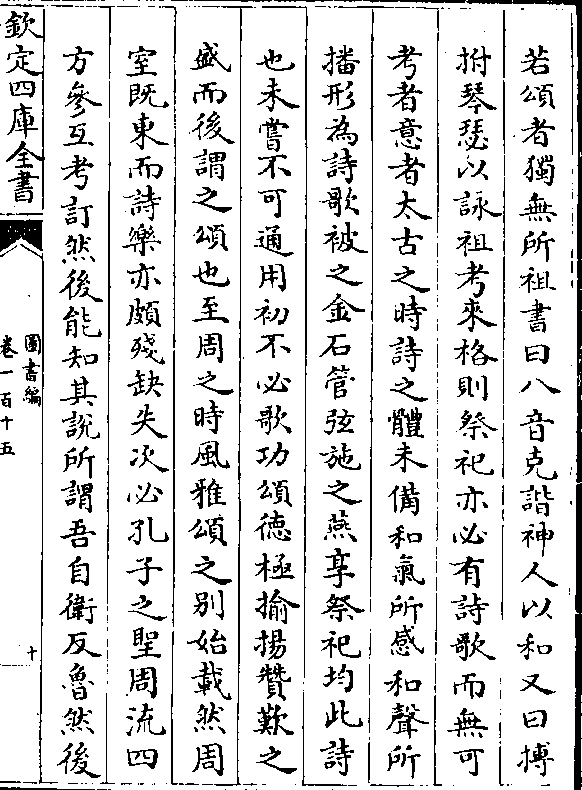 若頌者獨無所祖書曰八音克諧神人以和又曰搏
拊琴瑟以詠祖考來格則祭祀亦必有詩歌而無可
考者意者太古之時詩之體未備和氣所感和聲所
播形為詩歌被之金石管弦施之燕享祭祀均此詩
也未嘗不可通用初不必歌功頌德極揄揚贊歎之
盛而後謂之頌也至周之時風雅頌之別始截然周
室既東而詩樂亦頗殘缺失次必孔子之聖周流四
方參互考訂然後能知其說所謂吾自衛反魯然後
欽定四庫全書
圖書編
卷一百十五
十